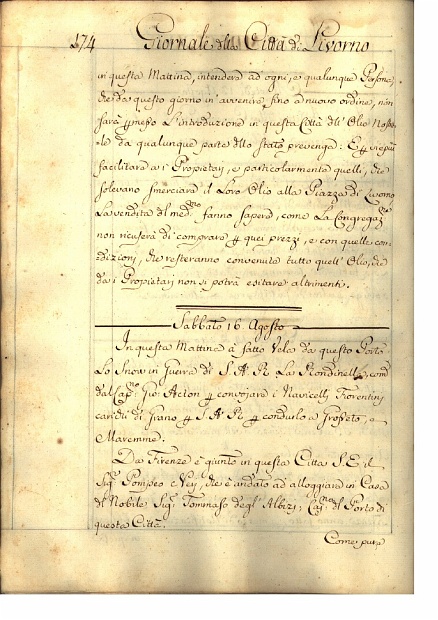 174 Giornale della Città di Livorno
in questa Mattina, intendere ad ogni, e qualunque Persona,
che da questo giorno in avvenire, fino a nuovo ordine, non
sarà permesso L'introduzione in questa Città dell' Olio
da qualunque parte dello stato provenga: E
facilitare a i Propietarj, e particolarmente quelli, che
solevano smerciare il Loro Olio alla Piazza di Livorno
La vendita del med.mo fanno sapere, come La Congregaz.ne
non ricuserà di comprare p quei prezzi, e con quelle con=
=dizioni, che resteranno convenute tutto quell' Olio, che
da i Propietarj non si potrà esitare altrimenti.
Sabbato 16 Agosto
In questa Mattina à fatto Vela da questo Porto
Lo Snow in Guerra di S. A. R. La Rondinella, com.
dal Cap.no Gio: Acton p convojare i Navicelli Fiorentini
carichi di Grano p S. A. R. p condurlo a Grosseto, e
Maremme.
Da Firenze è giunto in questa Citta S. E. il
Sig.r Pompeo Neri, che è andato ad alloggiare in Casa
del Nobile Sig.r Tommaso degl' Albizj, Cap.no del Porto di
questa Città.
Come pure